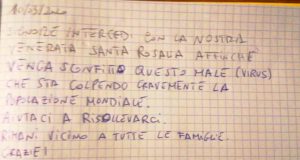 10/03/2020
SIGNORE INTERCEDI CON LA NOSTRA
VENERATA SANTA ROSALIA AFFINCHÈ
VENGA SCONFITTO QUESTO MALE (VIRUS)
CHE STA COLPENDO GRAVEMENTE LA
POPOLAZIONE MONDIALE.
AIUTACI A RISOLLEVARCI.
RIMANI VICINO A TUTTE LE FAMIGLIE.
GRAZIE!